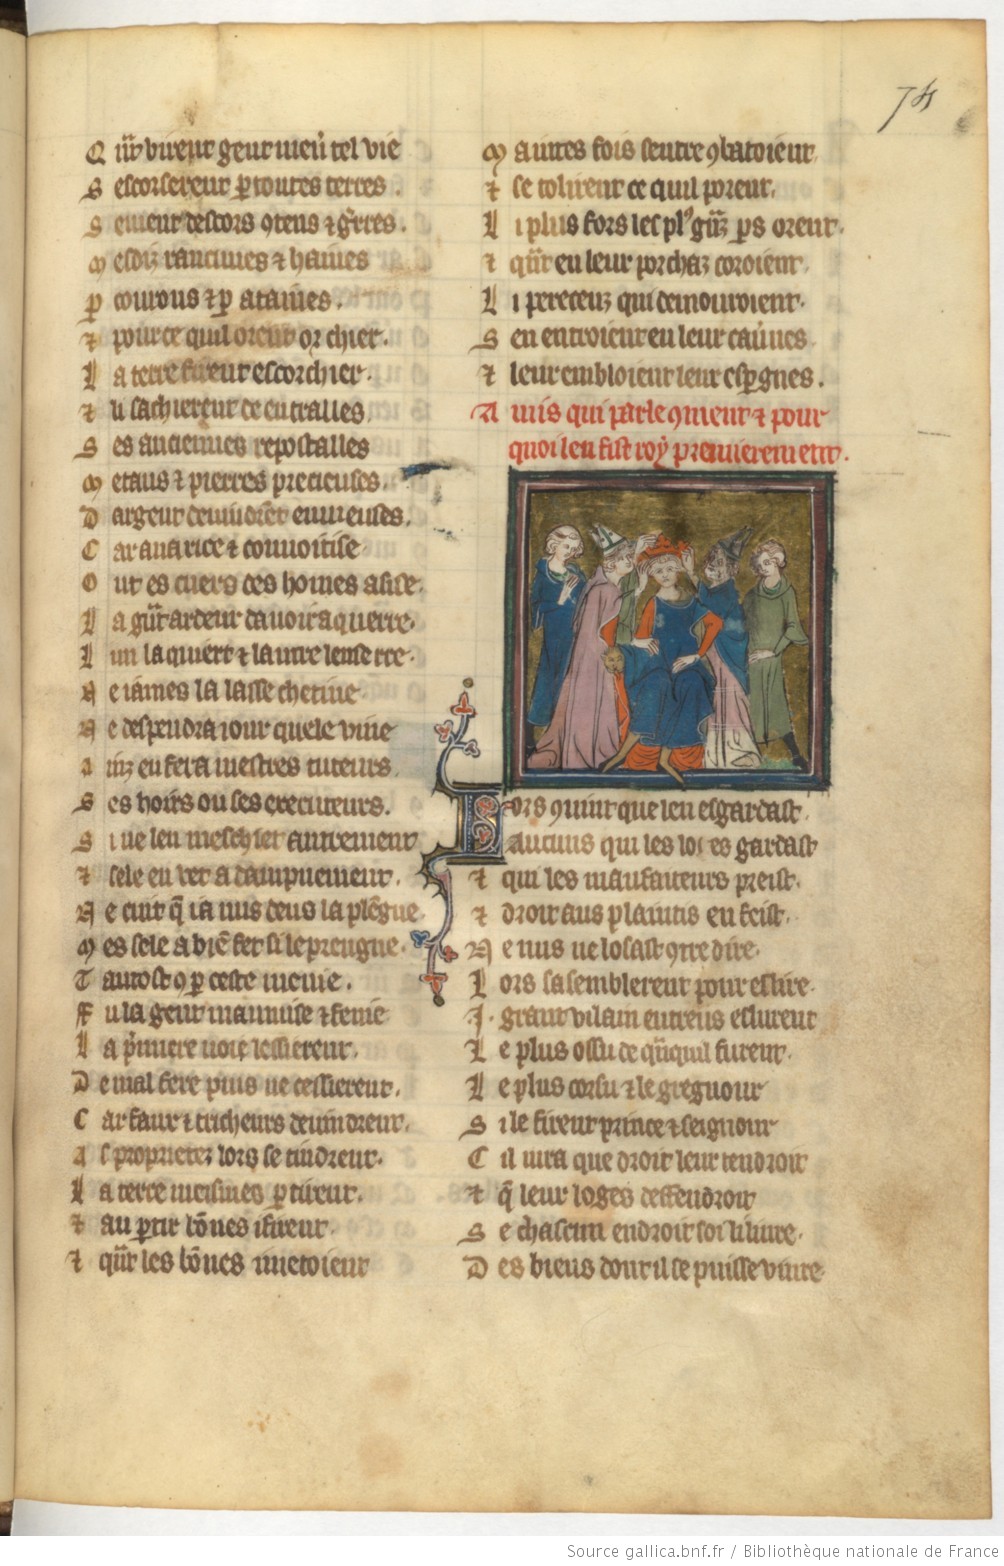 74
Qnt virent gent mener tel vie
Sescorserent par toutes terres.
Sement descors 9tens & gerres.
Mesdiz rancunes & haines
Par courous & par ataines.
& pour ce quil orent or chier.
La terre firent escorchier.
& li sachierent de entralles
Ses anciennes repostailles
Metaus & pierres precieuses.
Dargent devindrent envieuses.
Car avarice & convoitise
Ont es cuers des homes asise.
La grant ardeur davoir aquerre.
Lun laquiert & lautre lenserre.
Ne iames la lasse chetive
Ne despendra iour quele vive
Ainz en fera mestres tuteurs.
Ses hoirs ou ses executeurs.
Si ne len meschiet autrement
& sele en vet a dampnement.
Ne cuit q̃ ia nus deus la plengne
Mes sele a bien fet si le prengne.
Tantost 9 par ceste mesnie.
Fu la gent mau mise & fenie
La premiere voie lessierent.
De mal fere puis ne cessierent.
Car faux & tricheurs devindrent.
As proprietez lors se tindrent.
La terre meismes partirent.
& au partir bonnes i firent.
& quant les bonnes metoient
Maintes fois sentre 9batoient
& se tolirent ce quil porent.
Li plus fors les plus granz pars orent.
& quant en leur porchaz coroient
Li pereceuz qui demouroient.
Sen entroient en leur cavernes
& leur embloient leur espergnes.
Amis qui parle 9ment & pour
quoi len fist roy premierement.
Lors 9vint que len esgardast.
Aucuns qui les loges gardast
& qui les maufaiteurs preist.
& droit aus plaintis en feist.
Ne nus ne losast 9tredire.
Lors sasemblerent pour eslire.
.I. grant vilain entreus eslurent
Le plus ossu de quanquil furent.
Le plus corsu & le gregnour
Si le firent prince & seignour
Cil iura que droit leur tendroit
& q̃ leur loges deffendroit
Se chascun endroit soi li livre.
Des biens dont il se puisse vivre
Source gallica.bnf.fr / Bibliothèque nationale de France